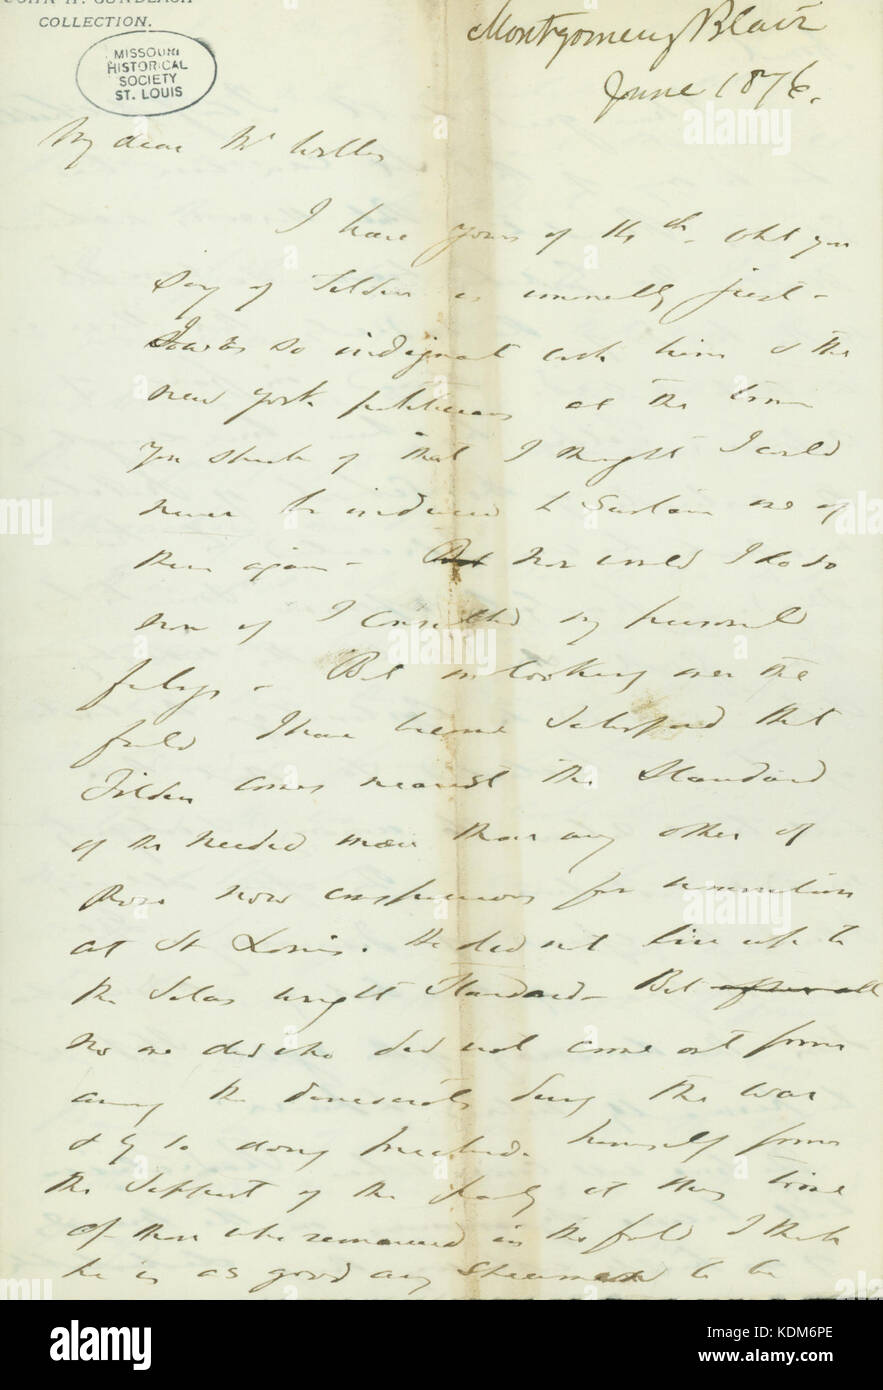 JOHN H. GUNDLACH
COLLECTION.
MISSOURI
HISTORICAL
SOCIETY
ST. LOUIS
Montgomery Blair
June 1876.
My dear Mr Welles
I have yours of 11th. What you
say of Tilden is
just -
I was so indignant with him & the
New York politicians at the time
you speak of that I thought I could
never be induced to sustain one of
them again - But nor would I do so
now if I consulted my personal
feelings - But in looking over the
field I have become satisfied that
Tilden comes nearest the Standard
of the needed man than any other of
those now conspicuous for nomination
at St Louis. He did not live up to
the Silas Wright Standard - But after all
no one did who did not come out from
among the democrats during the war
& by so doing preclude himself from
the support of the party at this time
Of those who remained in the fold I think
he is as good any
to be
alamy
a
alamy
Image ID: KDM6PE
www.alamy.com